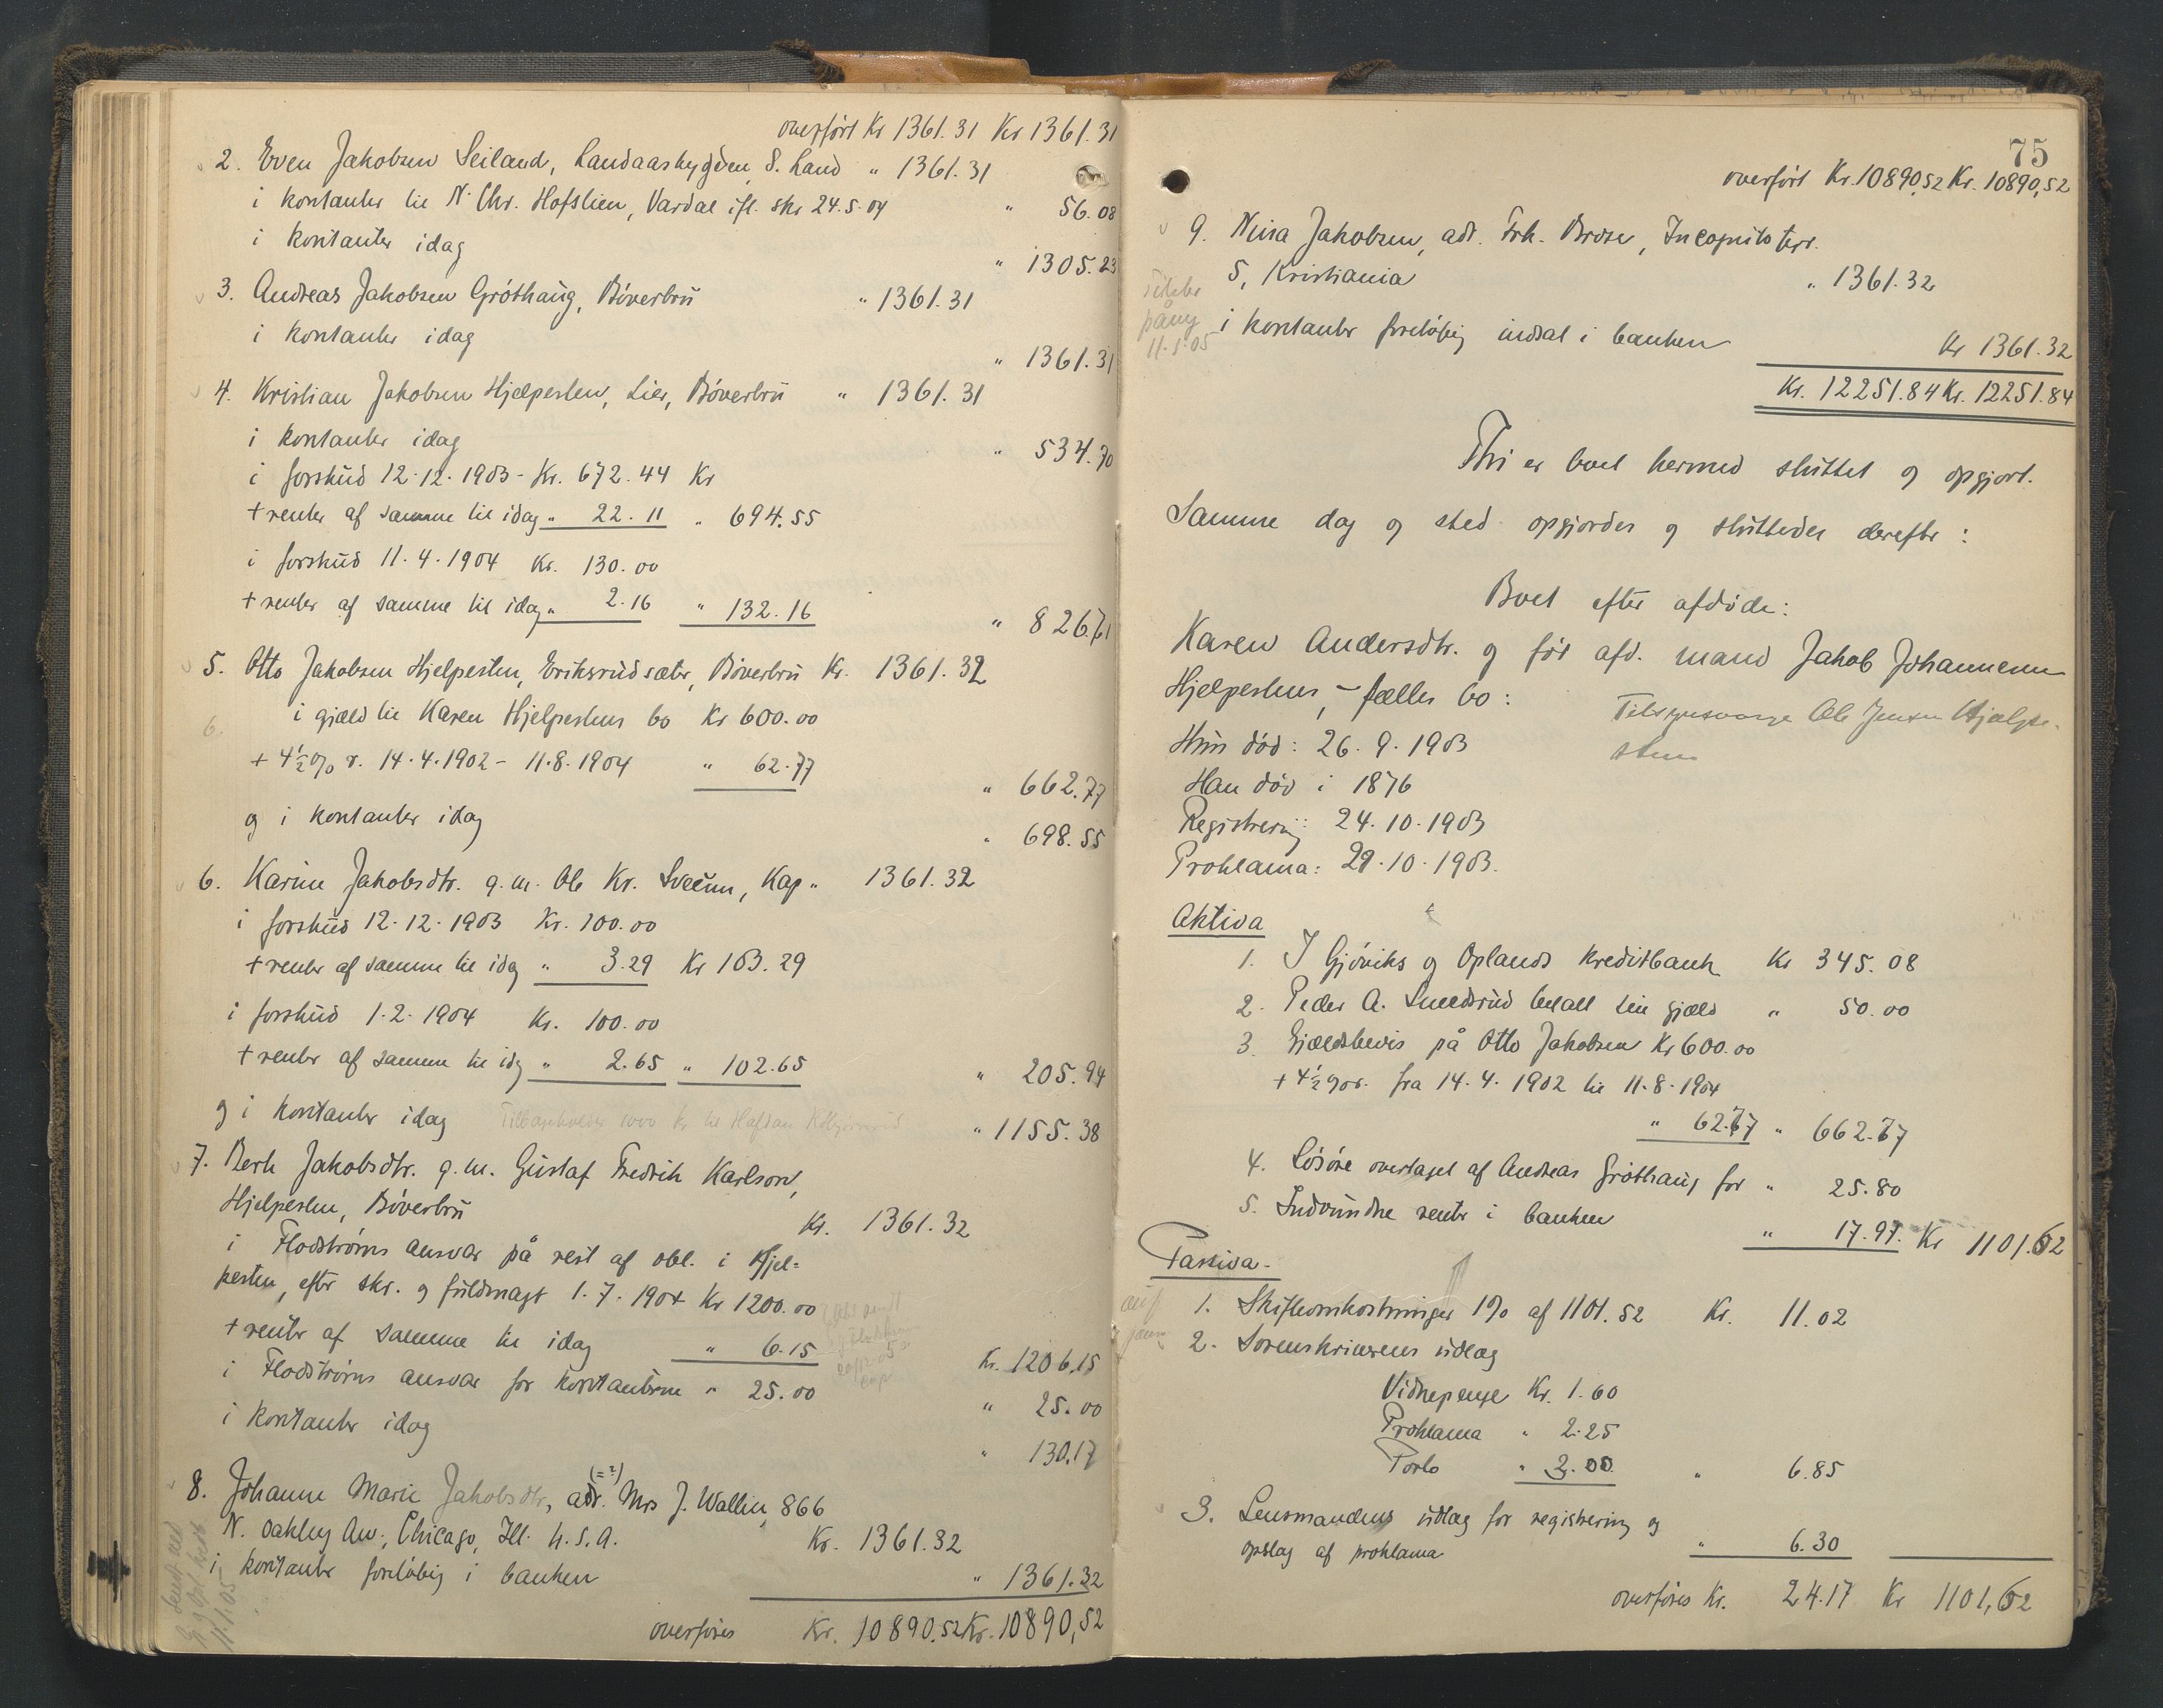 overført Kr 1361.31 Kr 1361.31
2. Even Jakobsen Seiland, Landaasbygden, S. Land " 1361.31
i kontanter til N. Chr. Hofslien, Vardal ifl. skr 24.5.04 " 56.08
i kontanter idag " 1305.23
3. Andreas Jakobsen Gróthaug, Bóverbru " 1361.31
i kontanter idag " 1361.31
4. Kristian Jakobsen Hjelpesten, Lier, Bóverbru " 1361.31
i kontanter idag " 534.70
i forskud 12.12.1903 - Kr. 672.44 Kr
+ renter af samme til idag " 22.11 " 694.55
i forskud 11.4.1904 Kr. 130.00
+ renter af samme til idag " 2.16 " 132.16 " 826.71
5. Otto Jakobsen Hjelpesten, Eriksrudsæter, Bóverbru Kr. 1361.32
i gjæld til Karen Hjelpestens bo Kr 600.00
+ 4½% r. 14.4.1902 - 11.8.1904 " 62.77 " 662.77
og i kontanter idag " 698.55
6. Karine Jakobsdtr. g.m. Ole Kr. Sveum, Kap " 1361.32
i forskud 12.12.1903 Kr. 100.00
+ renter af samme til idag " 3.29 Kr 103.29
i forskud 1.2.1904 Kr. 100.00
+ renter af samme til idag " 2.65 " 102.65 " 205.94
og i kontanter idag Tilbageholdes 1000 kr til Halfdan " 1155.38
7. Berte Jakobsdtr. g.m. Gustaf Fredrik Karlson,
Hjelpesten, Bóverbru Kr. 1361.32
i Flodstróms ansvar på rest af obl. i Hjel=
pesten, efter skr. og fuldmagt 1.7.1904 Kr 1200.00
+ renter af samme til idag " 6.15 Kr. 1206.15
i Flodstróms ansvar for kontanterne " 25.00 " 25.00
i kontanter idag " 130.17
8. Johanne Marie Jakobsdtr, adr. (=?) Mrs J. Wallin, 866
N. Oakley Av., Chicago, Ill. U.S.A. Kr. 1361.32
i kontanter foreløbig i banken " 1361.32
overføres Kr. 10890.52 Kr. 10890,52
75
overført Kr. 10890,52 Kr. 10890,52
9. Nina Jakobsen, adr. Frk. Broser, Incognito terr.
5, Kristiania " 1361.32
i kontanter foreløbig indsat i banken Kr 1361.32
11.1.05
Kr. 12251.84 Kr. 12251.84
Thi er boet hermed sluttet og opgjort.
Samme dag og sted opgjordes og sluttedes derefter:
Boet efter afdøde:
Karen Andersdtr. og før afd. mand Jakob Johannesen
Hjelpestens, - fælles bo: Tilsynsværge Ole Jensen Hjælpe-
sten
Hun død: 26.9.1903
Han død i 1876
Registrering: 24.10.1903
Proklama: 29.10.1903.
Aktiva
1. I Gjøviks og Oplands Kreditbank Kr 345.08
2. Peder A. Smedsrud betalt sin gjæld " 50.00
3. Gjældsbevis på Otto Jakobsen Kr 600.00
+ 4½% r. fra 14.4.1902 til 11.8.1904
" 62.77 " 662.77
4. Løsøre overtaget af Andreas Gróthaug for " 25.80
5. Indvundne renter i banken " 17.97. Kr 1101.62
Passiva.
1. Skifteomkostninger 1% af 1101.52 Kr. 11.02
2. Sorenskriverens udlæg
Vidnepenge Kr. 1.60
Proklama " 2.25
Porto " 3.00 " 6.85
3. Lensmandens udlæg for registrering og
opslag af proklama " 6.30
overføres Kr. 24.17 Kr 1101,62